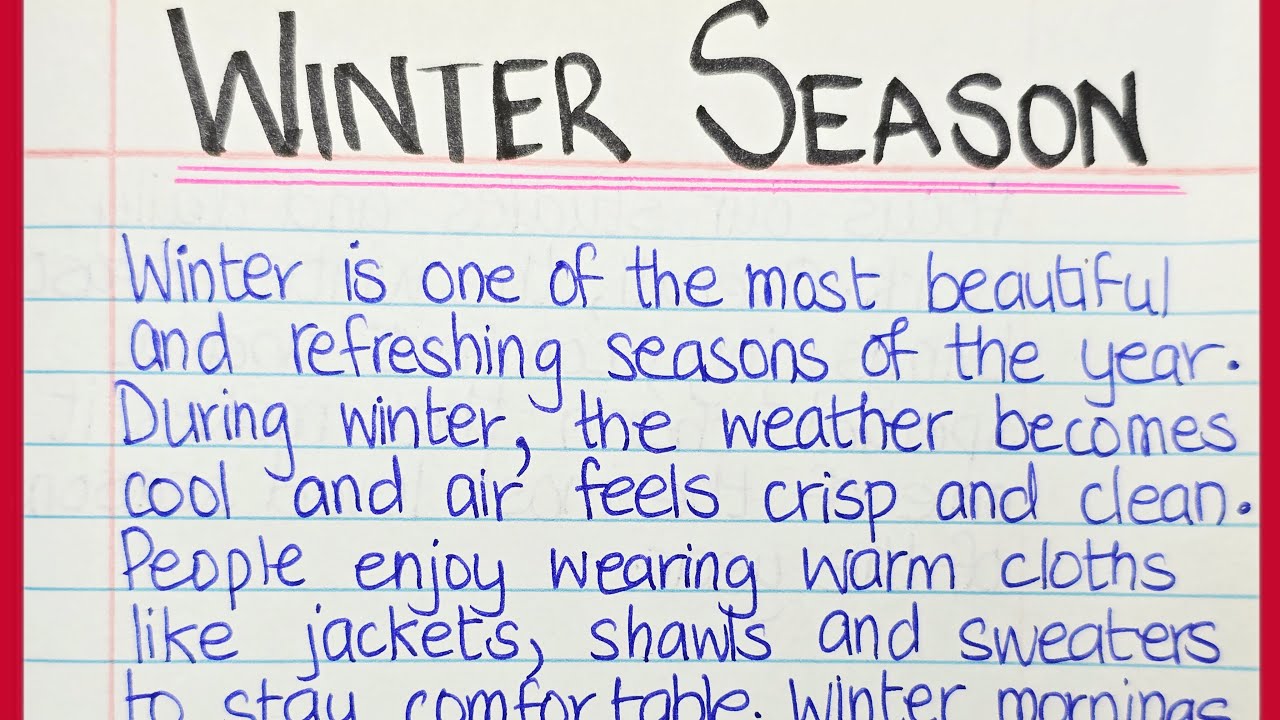 WINTER SEASON
Winter is one of the most beautiful
and refreshing seasons of the year.
During winter, the weather becomes
cool and air feels crisp and clean.
People enjoy wearing warm cloths
like jackets, shawls and sweaters
to stay comfortable. Winter mornings